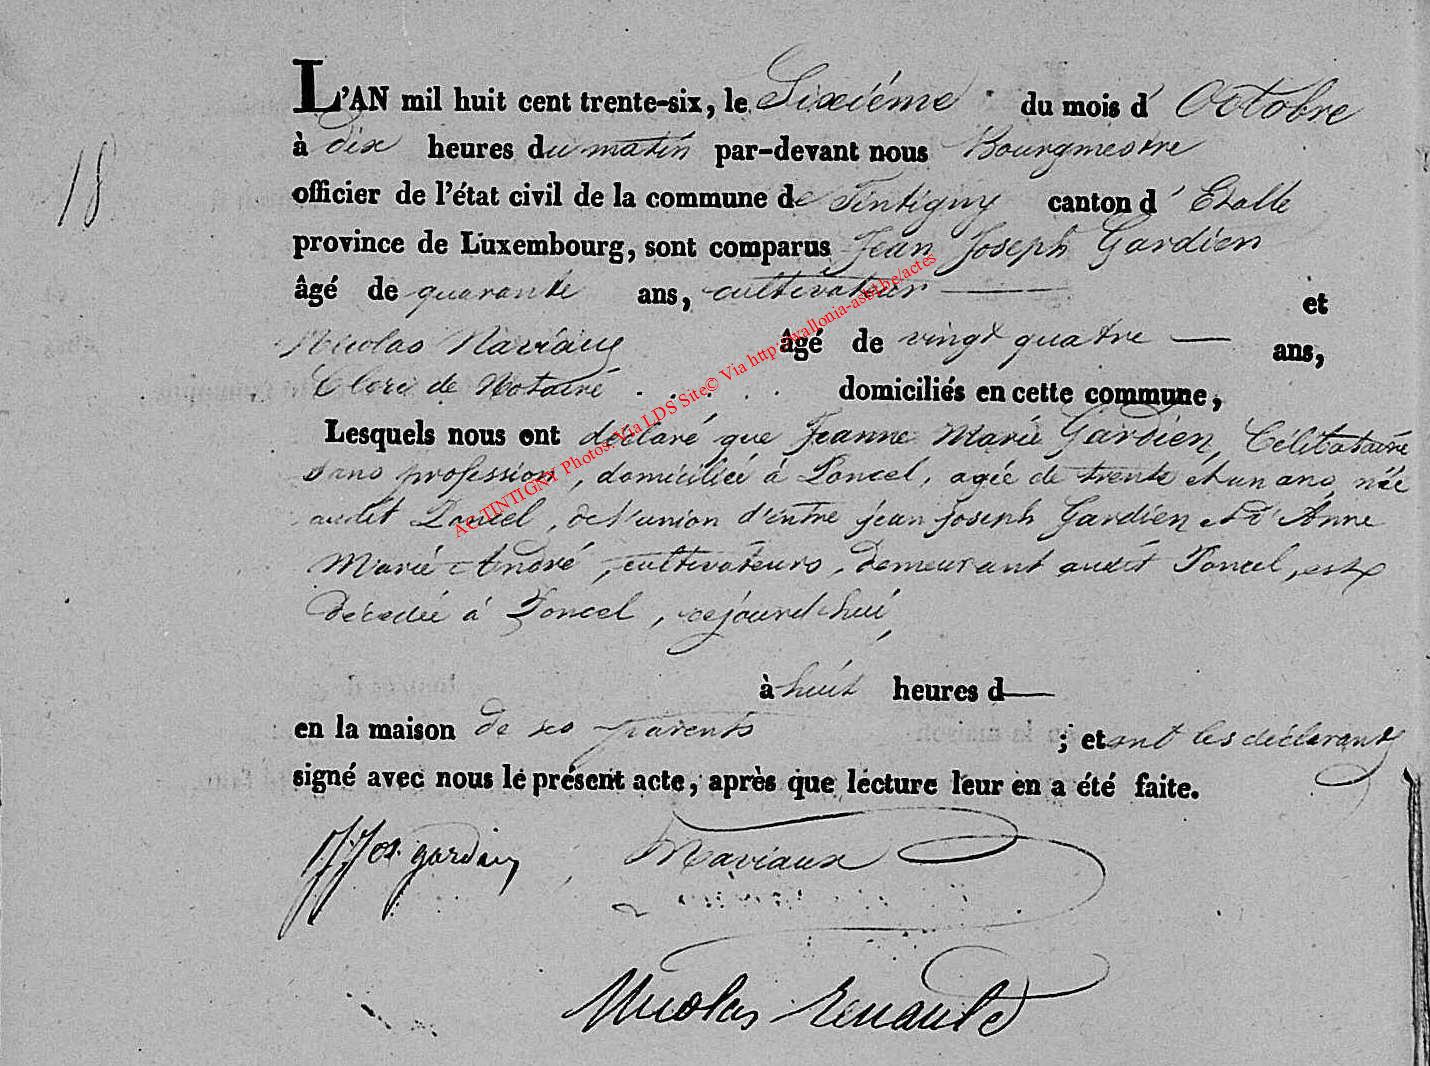 18
L'AN mil huit cent trente-six, le Sixiéme du mois d' Octobre
à dix heures du matin par-devant nous Bourgmestre
officier de l'état civil de la commune de Tintigny canton d' Etalle
province de Luxembourg, sont comparus Jean Joseph Gardien
âgé de quarante ans, cultivateur et
Nicolas Maviaux âgé de vingt quatre ans,
Clerc de Notaire . . . . . domiciliés en cette commune,
Lesquels nous ont déclaré que Jeanne Marie Gardien, Célibataire
sans profession, domiciliée à Poncel, agée de trente et un ans, née
audit Poncel, de l'union d'entre jean joseph Gardien et d'Anne
Marie André, cultivateurs, demeurant audit Poncel, est
décedée à Poncel, cejourd'hui,
à huit heures d
en la maison de ses parents ; et ont les déclarants
signé avec nous le présent acte, après que lecture leur en a été faite.
J Jos. gardien Maviaux
Nicolas Renauld
AC TINTIGNY Photos. Via LDS Site© Via http://wallonia-asbl.be/actes